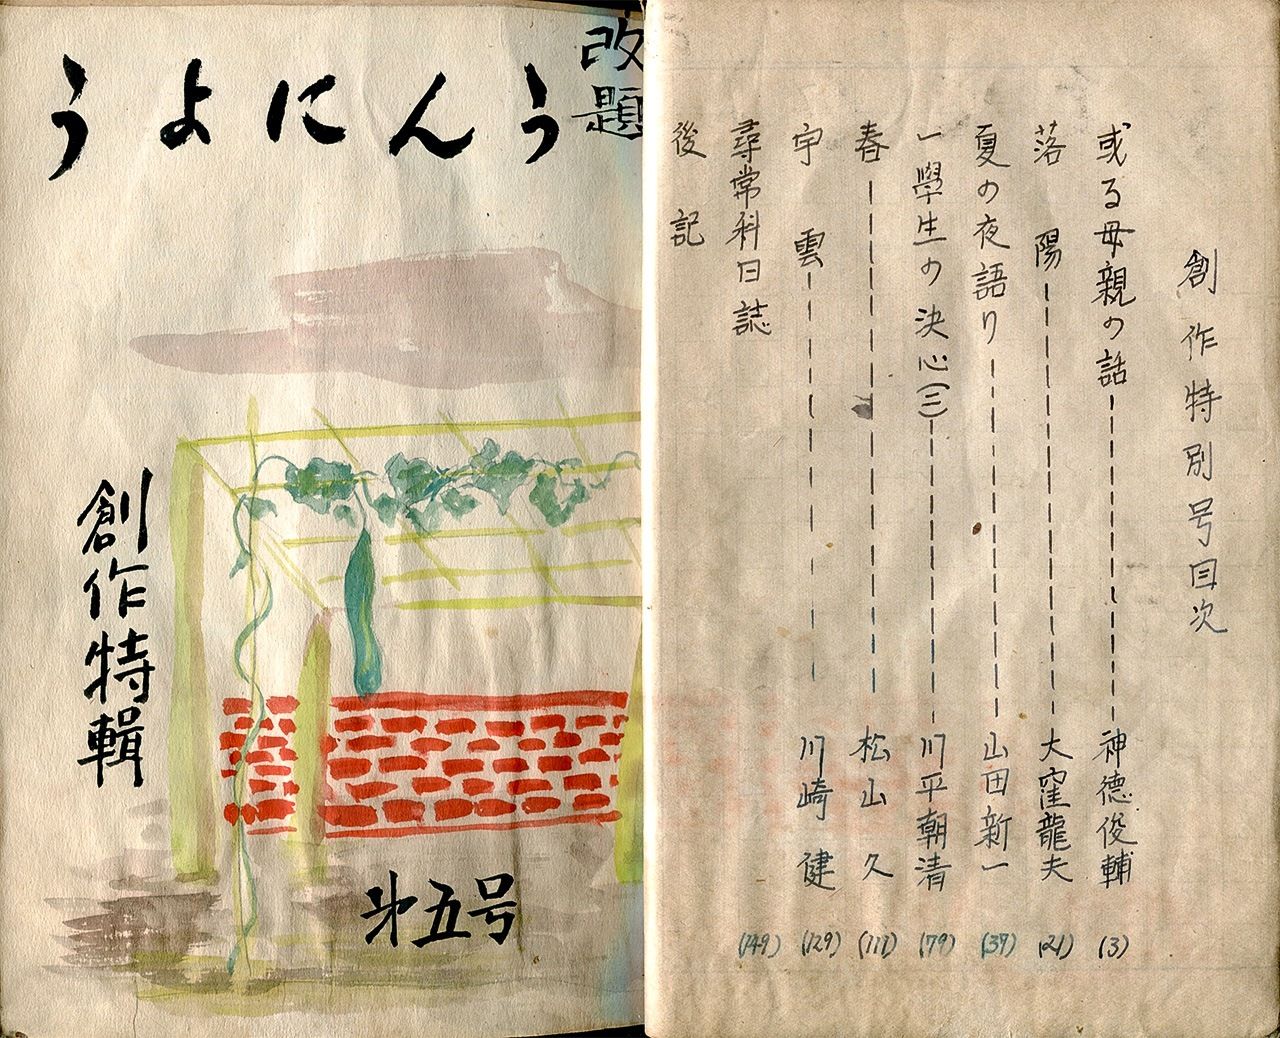 改題
うんによう
創作特輯
第五号
創作特別号目次
或る母親の話 神德俊輔 (3)
落陽 大窪龍夫 (21)
夏の夜語り 山田新一 (37)
一學生の決心(三) 川平朝清 (79)
春 松山久 (111)
宇雲 川崎健 (129)
尋常科日誌 (149)
後記